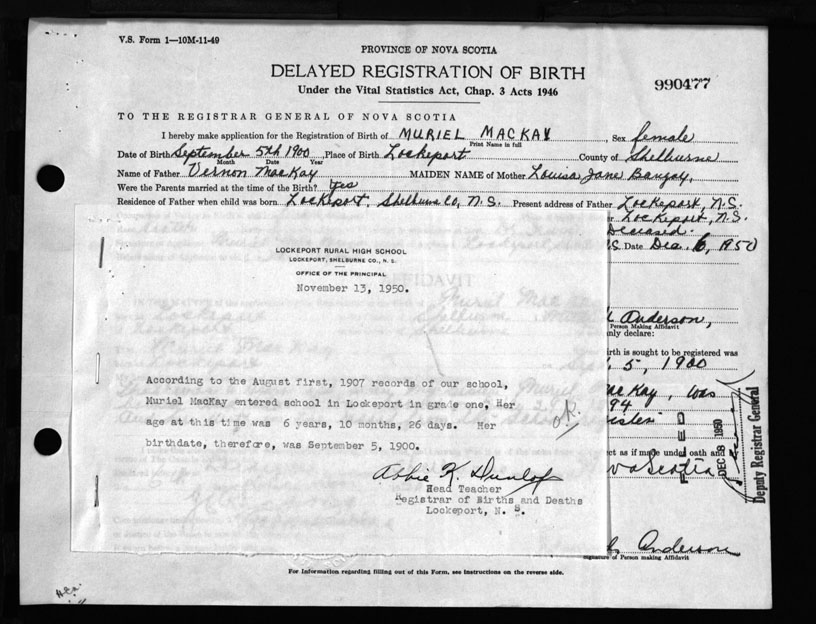 V.S. Form 1—10M-11-49
PROVINCE OF NOVA SCOTIA
DELAYED REGISTRATION OF BIRTH
Under the Vital Statistics Act, Chap. 3 Acts 1946
990477
TO THE REGISTRAR GENERAL OF NOVA SCOTIA
I hereby make application for the Registration of Birth of MURIEL MACKAY Sex female
Print Name in full
Date of Birth September 5th 1900 Place of Birth Lockeport County of Shelburne
Month Date Year
Name of Father Vernon MacKay MAIDEN NAME of Mother Louisa Jane
Were the Parents married at the time of the Birth? Yes
Residence of Father when child was born Lockeport, Shelburne Co, N.S. Present address of Father Lockeport, N.S.
Lockeport, N.S.
Deceased.
Date Dec. 6, 1950
LOCKEPORT RURAL HIGH SCHOOL
LOCKEPORT, SHELBURNE CO., N. S.
OFFICE OF THE PRINCIPAL
November 13, 1950.
According to the August first, 1907 records of our school,
Muriel MacKay entered school in Lockeport in grade one, Her
age at this time was 6 years, 10 months, 26 days. Her
birthdate, therefore, was September 5, 1900.
OK.
Abbie K. Dunlop
Head Teacher
Registrar of Births and Deaths
Lockeport, N. S.
Anderson,
Person Making Affidavit
declare:
birth is sought to be registered was
5, 1900
MacKay, was
94
sister
as if made under oath and
Nova Scotia
FILED
DEC 8 1950
Deputy Registrar General
Anderson
Signature of Person making Affidavit
For Information regarding filling out of this Form, see instructions on the reverse side.